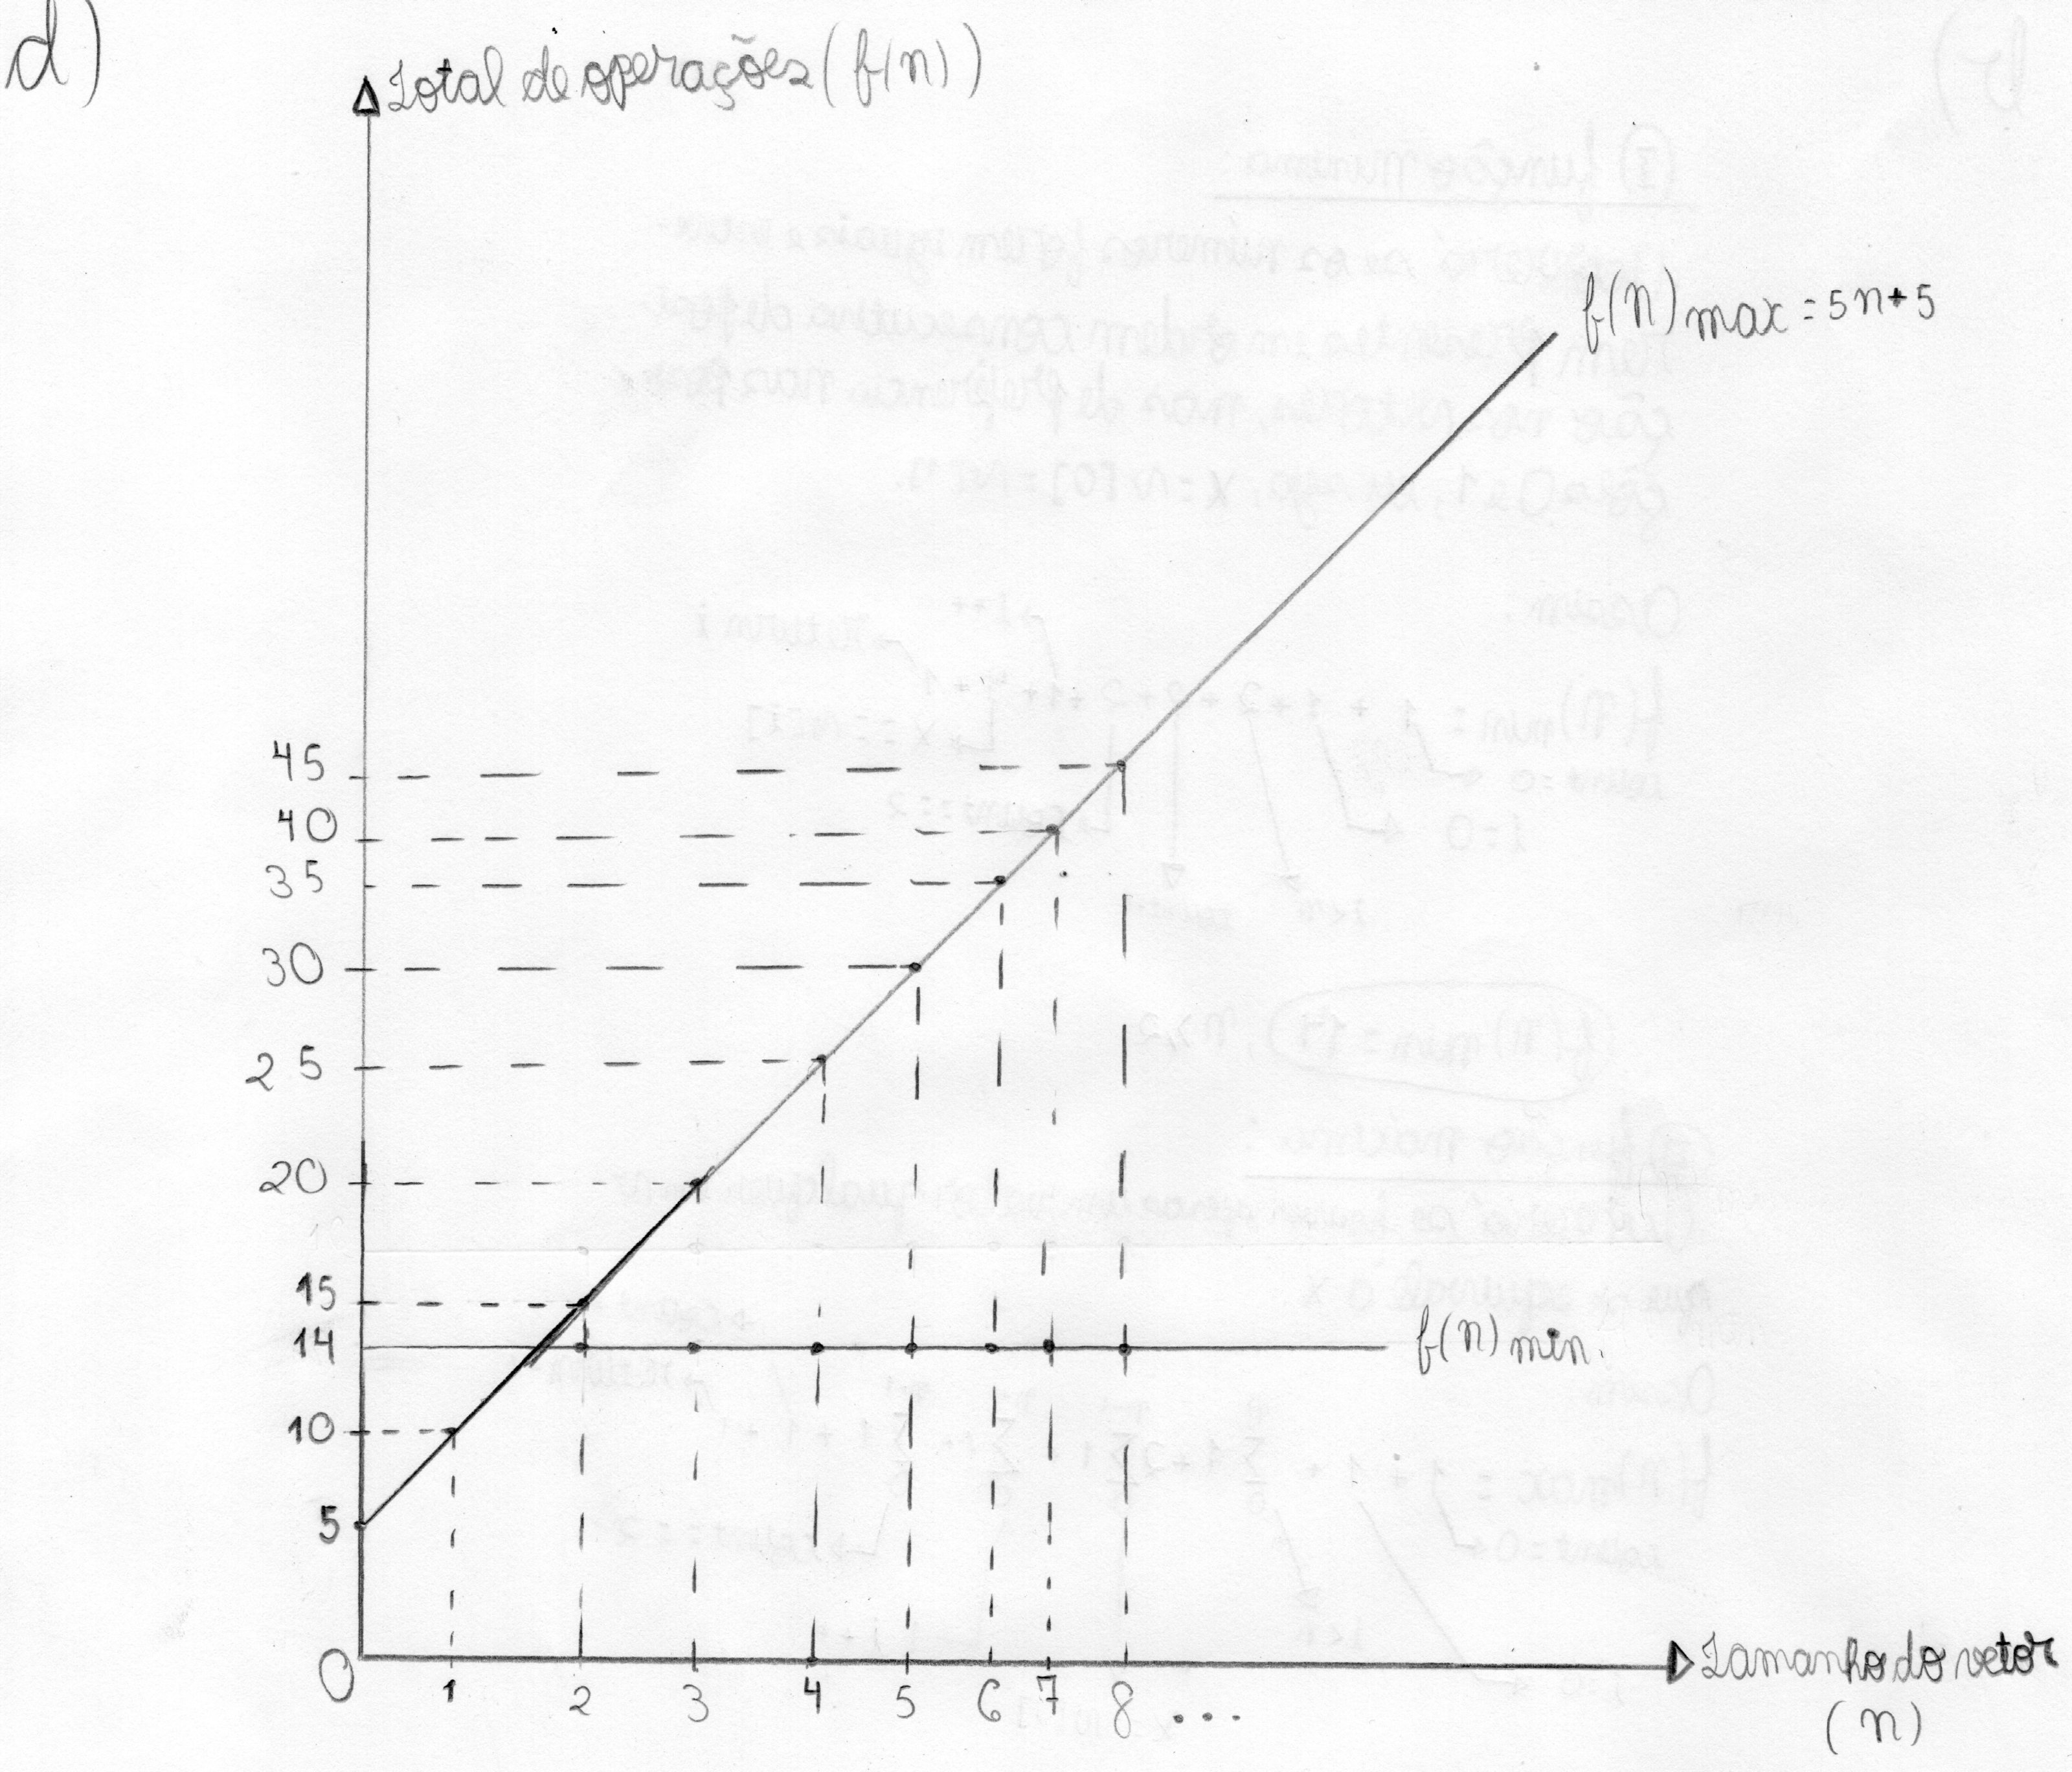 d)
Total de operações (f(n))
f(n) max = 5n+5
45
40
35
30
25
20
15
14
f(n) min.
10
5
0
1 2 3 4 5 6 7 8 ...
Tamanho do vetor
(n)